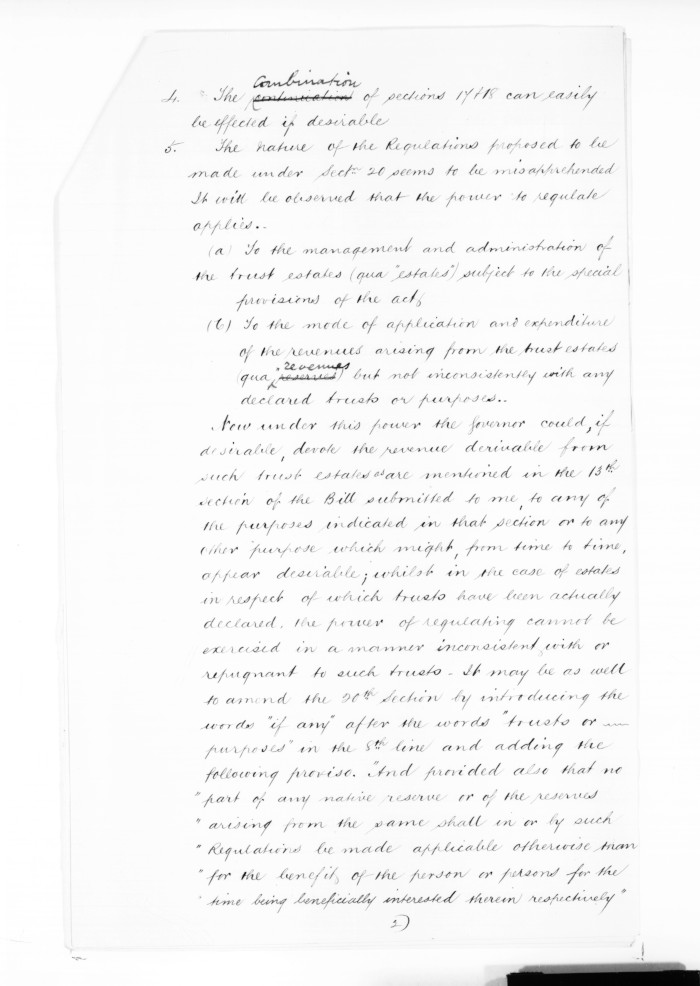 Combination
4. "The continuation of sections 17 & 18 can easily
be effected if desirable
5. The nature of the Regulations proposed to be
made under Sectn 20 seems to be misapprehended
It will be observed that the power to regulate
applies..
(a) To the management and administration of
the trust estates (qua "estates") subject to the special
provisions of the act,
(b) To the mode of application and expenditure
of the revenues arising from the trust estates
revenues
(qua reserves) but not inconsistently with any
declared trusts or purposes..
Now under this power the Governor could, if
desirable, devote the revenue derivable from
such trust estates as are mentioned in the 13th
section of the Bill submitted to me, to any of
the purposes indicated in that section or to any
other purpose which might, from time to time,
appear desirable; whilst in the case of estates
in respect of which trusts have been actually
declared. the power of regulating cannot be
exercised in a manner inconsistent with or
repugnant to such trusts - It may be as well
to amend the 20th Section by introducing the
words "if any" after the words "trusts or —
purposes" in the 8th line and adding the
following proviso. "And provided also that no
" part of any native reserve or of the reserves
" arising from the same shall in or by such
" Regulations be made applicable otherwise than
" for the benefit of the person or persons for the
" time being beneficially interested therein respectively"
2)